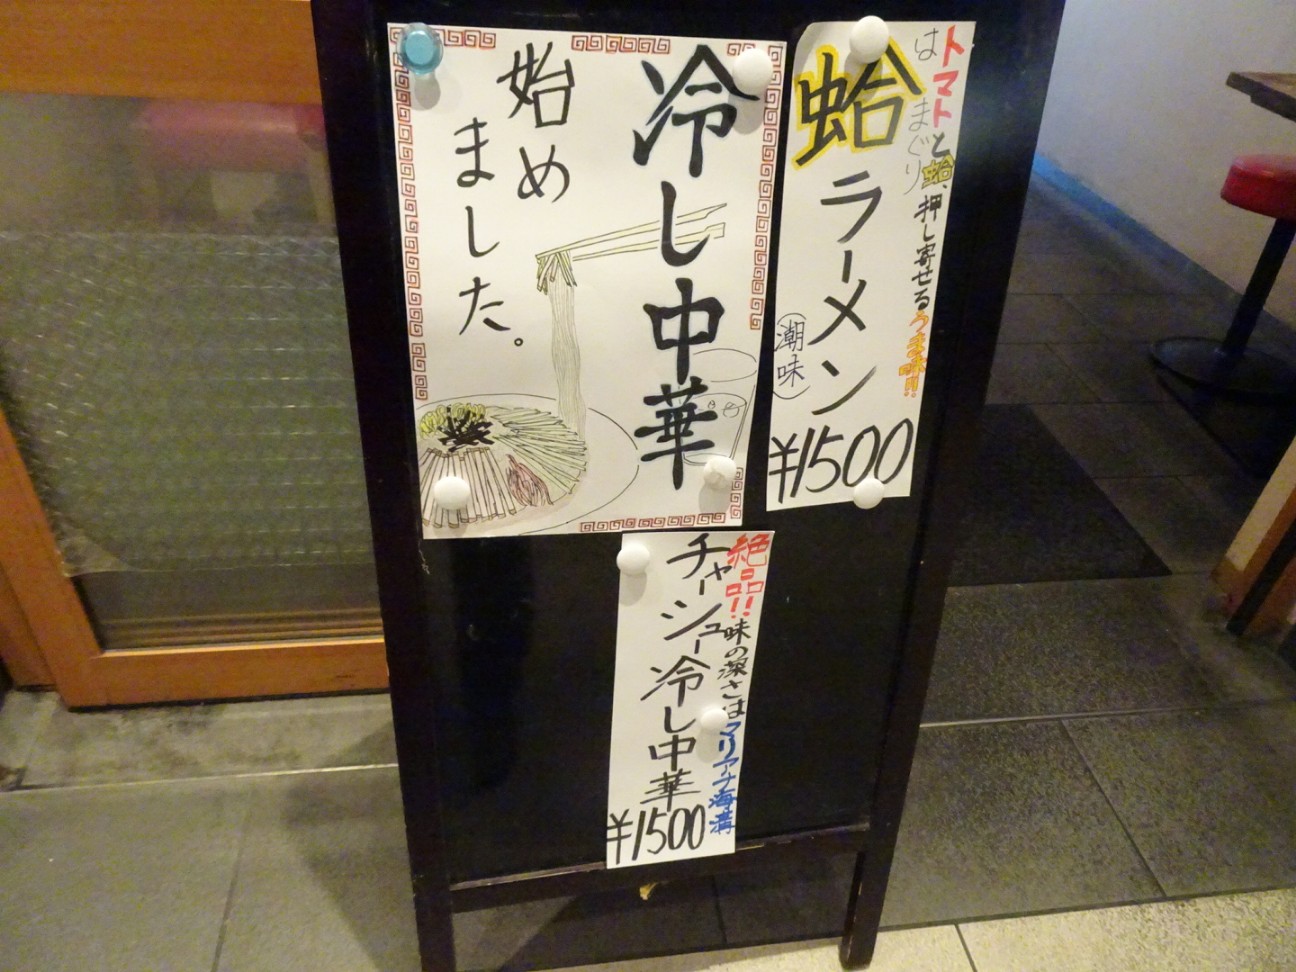 トマトと蛤、押し寄せるうま味!!
はまぐり
蛤ラーメン
(潮味)
¥1500
冷し中華
始め
ました。
絶品!!味の深さはマリアナ海溝
チャーシュー冷し中華
¥1500